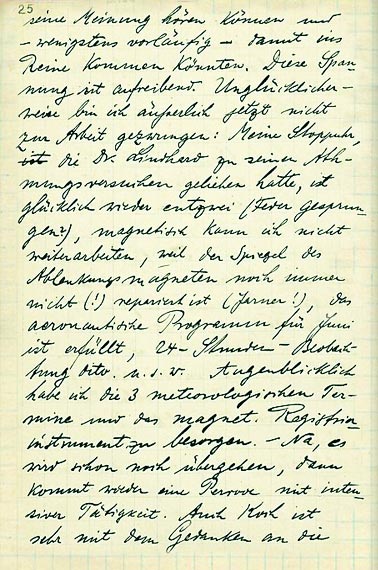 25
seine Meinung hören können und
- wenigstens vorläufig - damit ins
Reine kommen könnten. Diese Span
nung ist aufreibend. Unglücklicher-
weise bin ich äußerlich jetzt nicht
zur Arbeit gezwungen: Meine Stoppuhr,
ist die Dr. Lindhard zu seinen Ath-
mungsversuchen geliehen hatte, ist
glücklich wieder entzwei (Feder gesprun-
gen?), magnetisch kann ich nicht
weiterarbeiten, weil der Spiegel des
Ablenkungsmagneten noch immer
nicht (!) repariert ist (Jarner!), das
aeronautische Programm für Juni
ist erfüllt, 24-Stunden-Beobach-
tung dito. u.s.w. Augenblicklich
habe ich die 3 meteorologischen Ter-
mine und das magnet. Registrier
instrument zu besorgen. - Na, es
wird schon noch übergehen, dann
kommt wieder eine Periode mit inten-
siver Tätigkeit. Auch Koch ist
sehr mit dem Gedanken an die